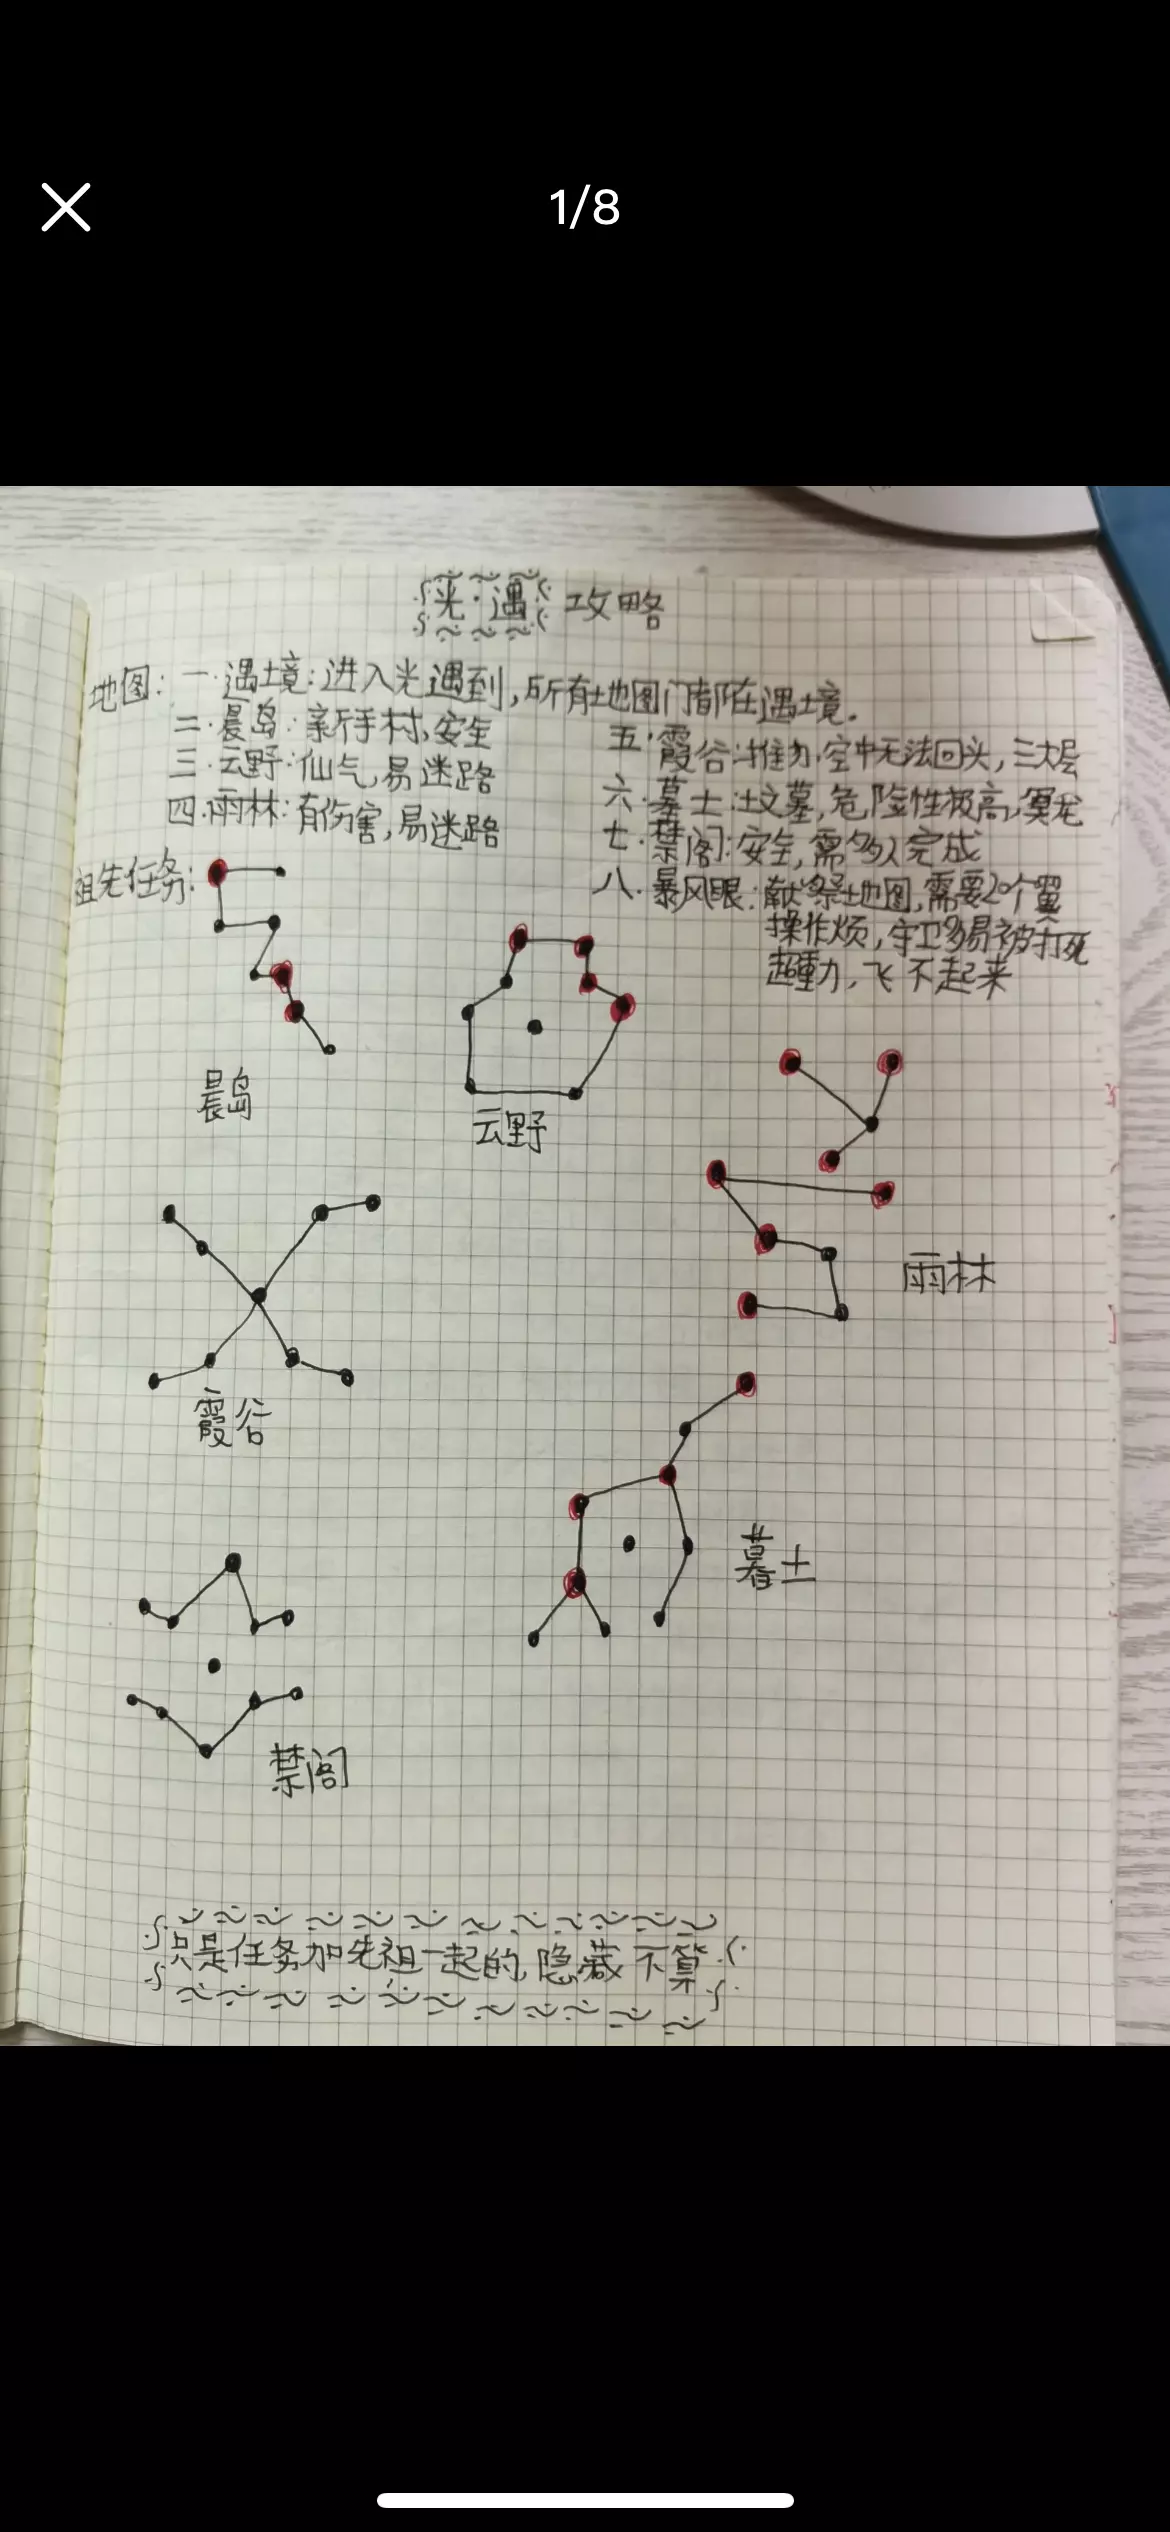 1/8
光·遇 攻略
地图: 一·遇境:进入光遇到,所有地图门都在遇境.
二·晨岛:新手村,安全
三·云野:仙气,易迷路
四·雨林:有伤害,易迷路
五·霞谷:推力,空中无法回头,三大层
六·墓土:土文墓,危险性极高,冥龙
七·禁阁:安全,需多人完成
八·暴风眼:献祭地图,需要20个翼
操作烦,守卫多易被打死
超重力,飞不起来
祖先任务:
晨岛
云野
雨林
霞谷
暮土
禁阁
只是任务加先祖一起的,隐藏不算